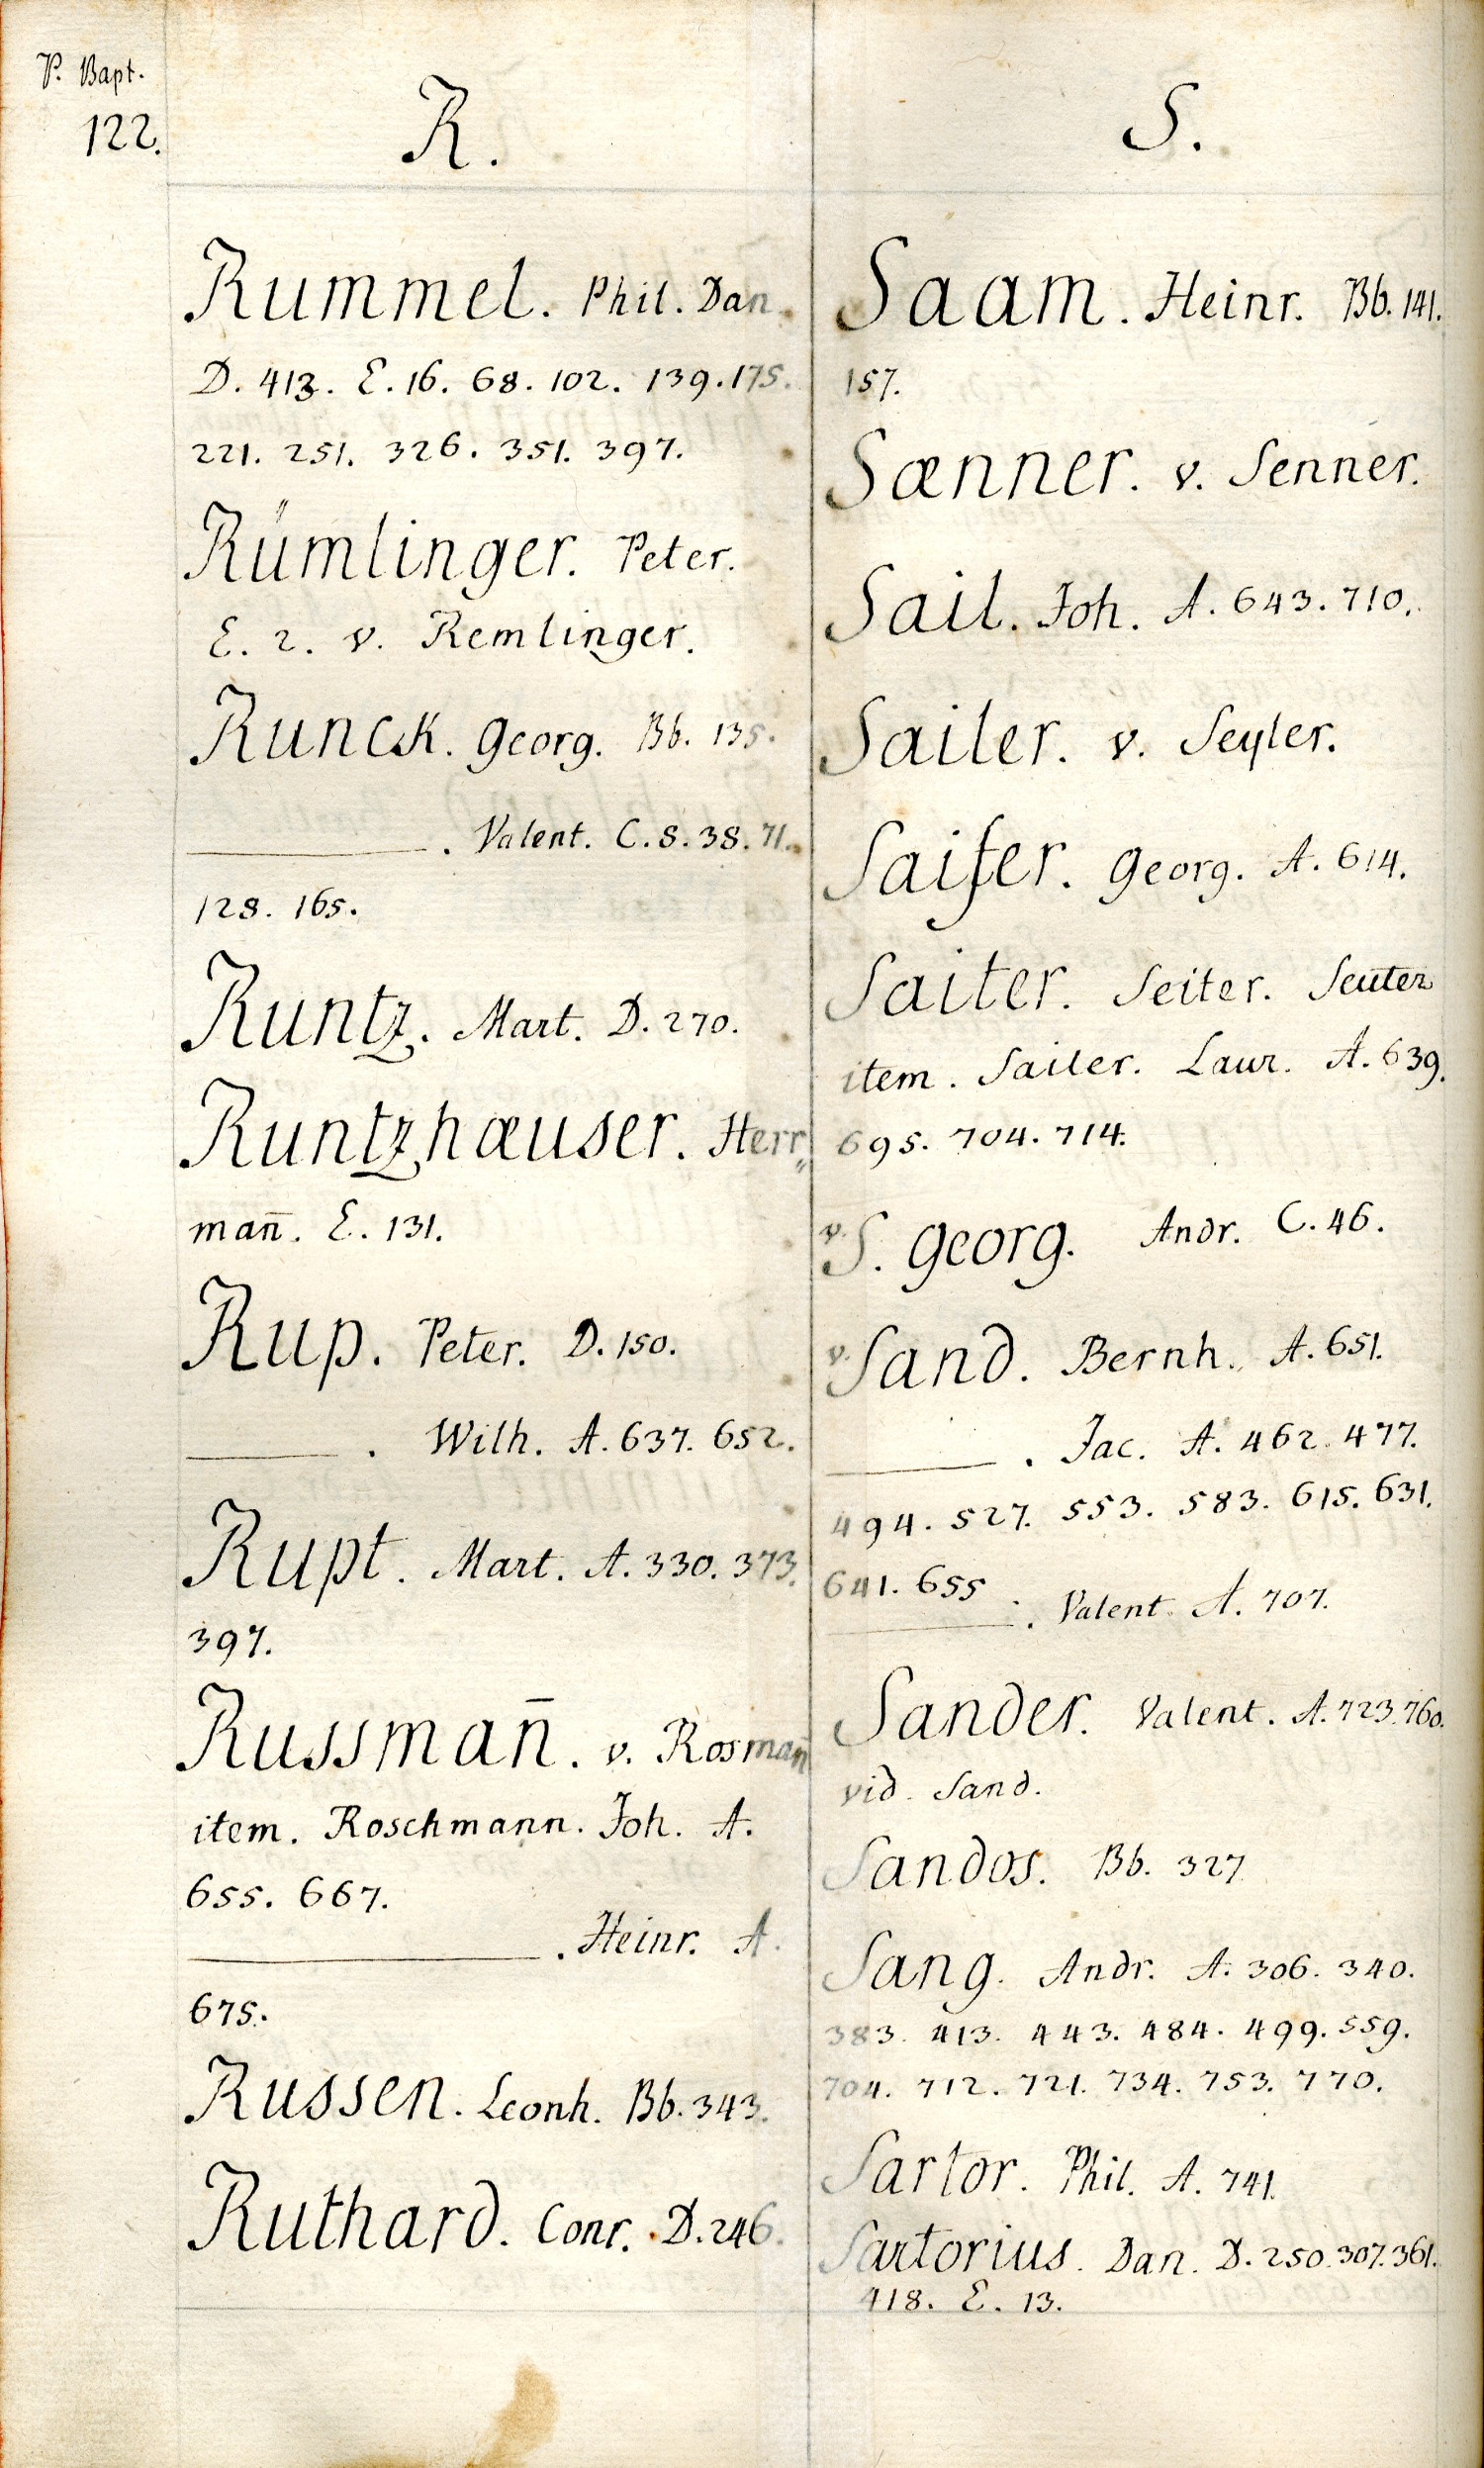 P. Bapt.
122.
R.
Rummel. Phil. Dan.
D. 413. E. 16. 68. 102. 139. 175.
221. 251. 326. 351. 397.
Rümlinger. Peter.
E. 2. v. Remlinger.
Runck. Georg. Bb. 135.
———. Valent. C. 8. 38. 71.
128. 165.
Runtz. Mart. D. 270.
Runtzhæuser. Herr„
man̄. E. 131.
Rup. Peter. D. 150.
———. Wilh. A. 637. 652.
Rupt. Mart. A. 330. 373.
397.
Russman̄. v. Rosman̄
item. Roschmann. Joh. A.
655. 667.
———. Heinr. A.
675.
Russen. Leonh. Bb. 343.
Ruthard. Conr. D. 246.
S.
Saam. Heinr. Bb. 141.
157.
Sænner. v. Senner.
Sail. Joh. A. 643. 710.
Sailer. v. Seyler.
Saifer. Georg. A. 614.
Saiter. Seiter. Seuter
item. Sailer. Laur. A. 639.
695. 704. 714.
v. S. Georg. Andr. C. 46.
v. Sand. Bernh. A. 651.
———. Jac. A. 462. 477.
494. 527. 553. 583. 615. 631.
641. 655
———. Valent. A. 707.
Sander. Valent. A. 723. 760.
vid. Sand.
Sandos. Bb. 327
Sang. Andr. A. 306. 340.
383. 413. 443. 484. 499. 559.
704. 712. 721. 734. 753. 770.
Sartor. Phil. A. 741.
Sartorius. Dan. D. 250. 307. 361.
418. E. 13.